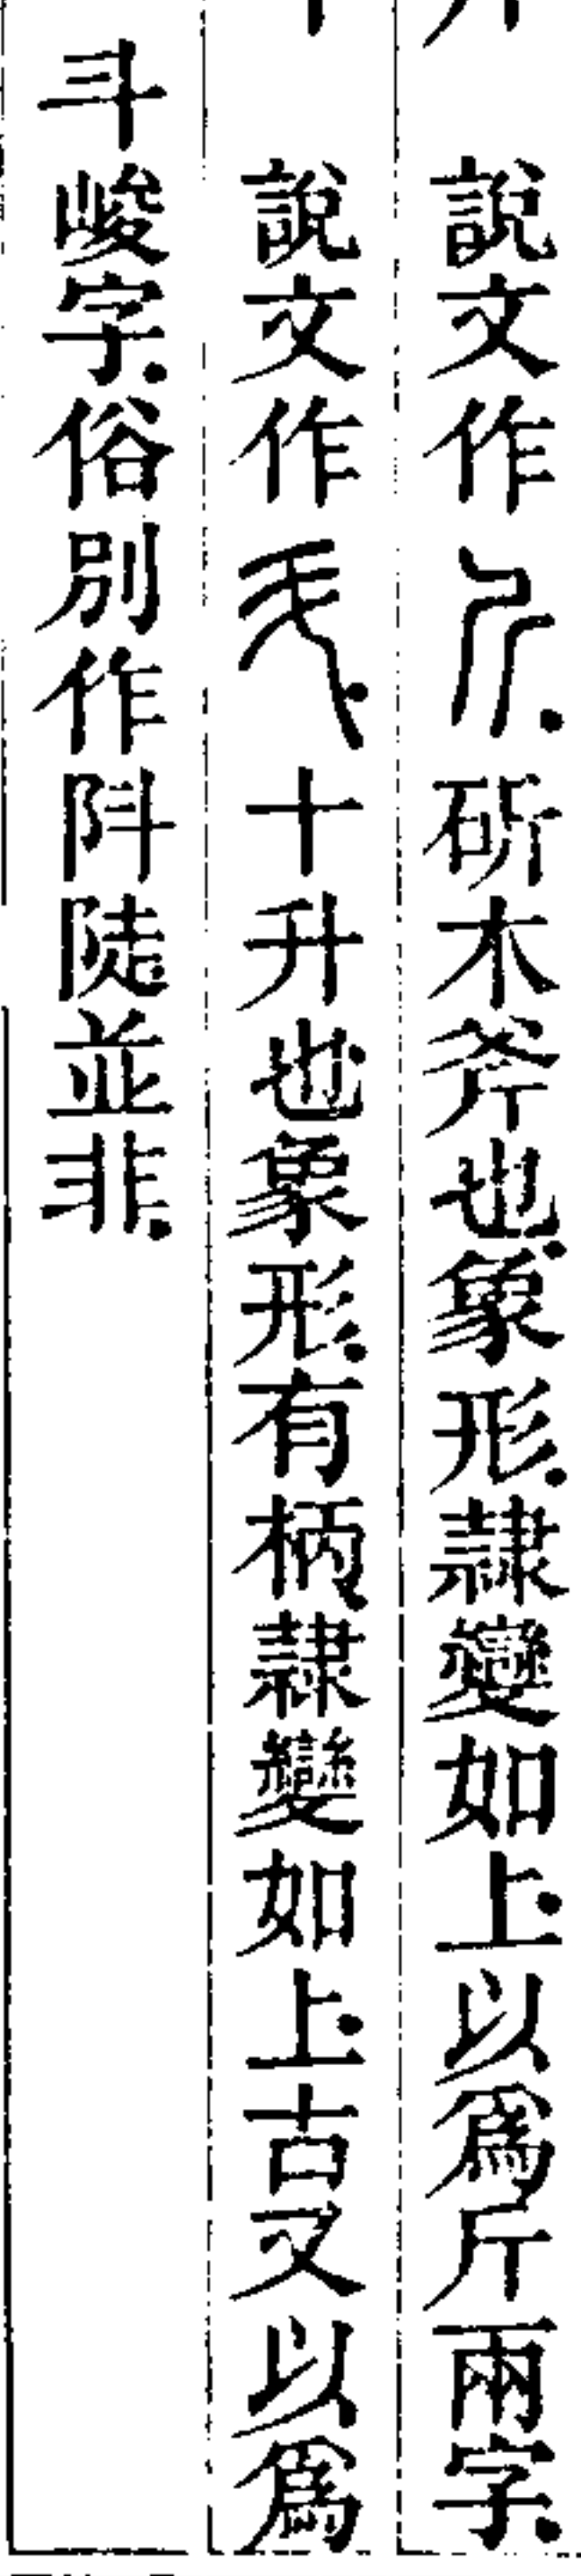 說文作𣂑斫木斧也象形隸變如上以爲斤兩字
說文作𠦂十升也象形有柄隸變如上古又以爲
斗峻字俗別作阧陡並非